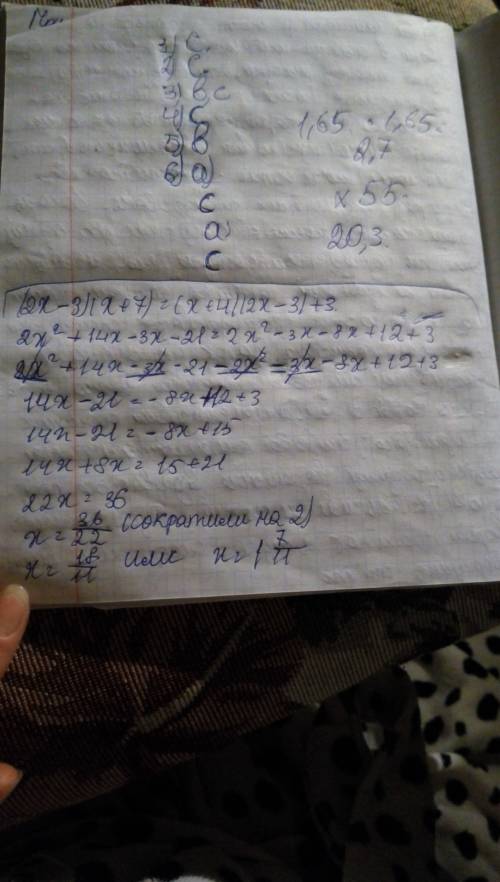 1) C.
2) C.
3) B C
4) C
5) B
6) a)
C
a
C
1,65 · 1,65 =
2,7
x 55.
20,3
(2x-3)(x+7)=(x+4)(2x-3)+3
2x²+14x-3x-21=2x²-3x-8x+12+3
2x²+14x-3x-21-2x²=3x-8x+12+3
14x-21=-8x+12+3
14x-21=-8x+15
14x+8x=15+21
22x=36
x=36/22 (сократили на 2)
x=18/11 или x=1 7/11